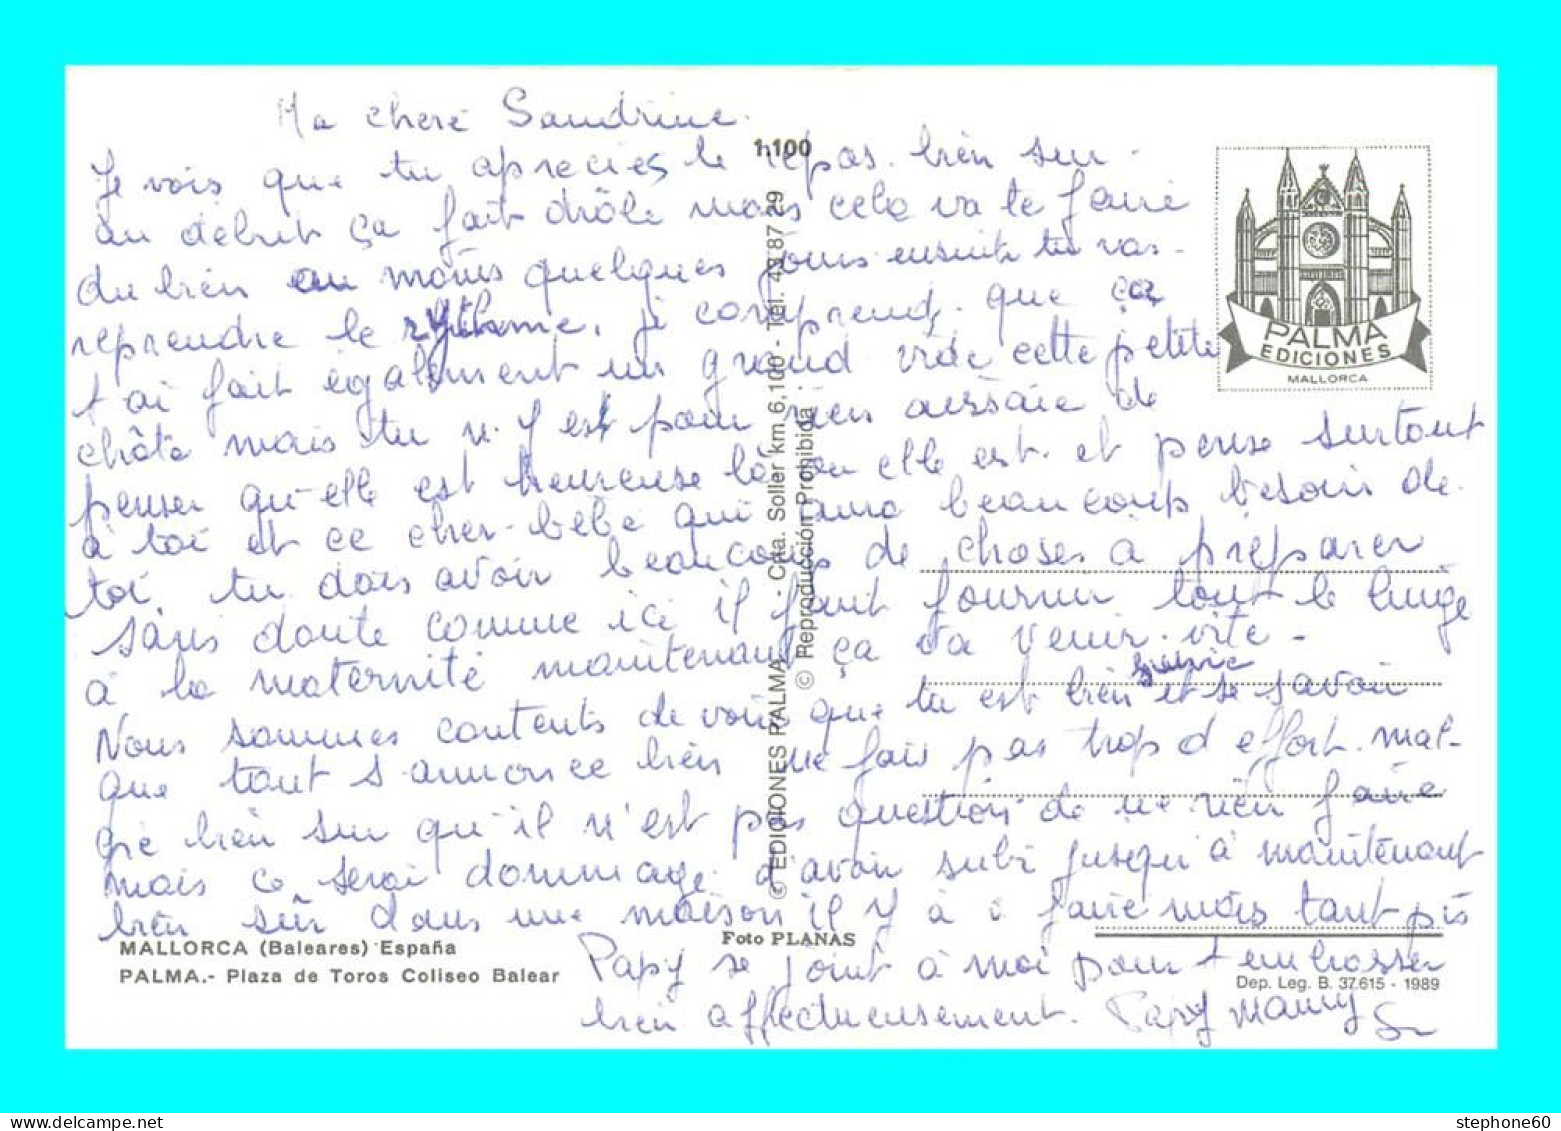 Ma chere Sandrine.
1.100
Je vois que tu aprecies le repas. bien sur.
au debut ça fait drôle mais cela va te faire
du bien au moins quelques jours ensuite tu vas-
reprendre le rythme. je comprends. que ça
t'ai fait également un grand vide cette petite
châte mais tu n.y est pour rien aissaie de
penser qu-elle est heureuse là ou elle est. et pense surtout
à toi et ce cher-bébé qui aura beaucoup besoin de
toi. tu dois avoir beaucoup de choses à préparer
sans doute comme ici il faut fournir tout le linge
à la maternité maintenant ça va venir. vite-
Nous sommes contents de voir que tu est bien suivie et se savoir
que tout s-annonce bien ne fais pas trop d effort. mal-
gré bien sur qu'il n'est pas question de ne rien faire
mais ce serai dommage d'avoir subi jusqu'à maintenant
bien sûr dans une maison il y à à faire mais tant pis
Papy se joint à moi pour t embrasser
bien affectueusement. Papy Mamy
PALMA
EDICIONES
MALLORCA
© EDICIONES PALMA - Cta. Soller km. 6,100 - Tel. 43 87 29
© Reproducción Prohibida
MALLORCA (Baleares) España
PALMA.- Plaza de Toros Coliseo Balear
Foto PLANAS
Dep. Leg. B. 37.615 - 1989
stephone60